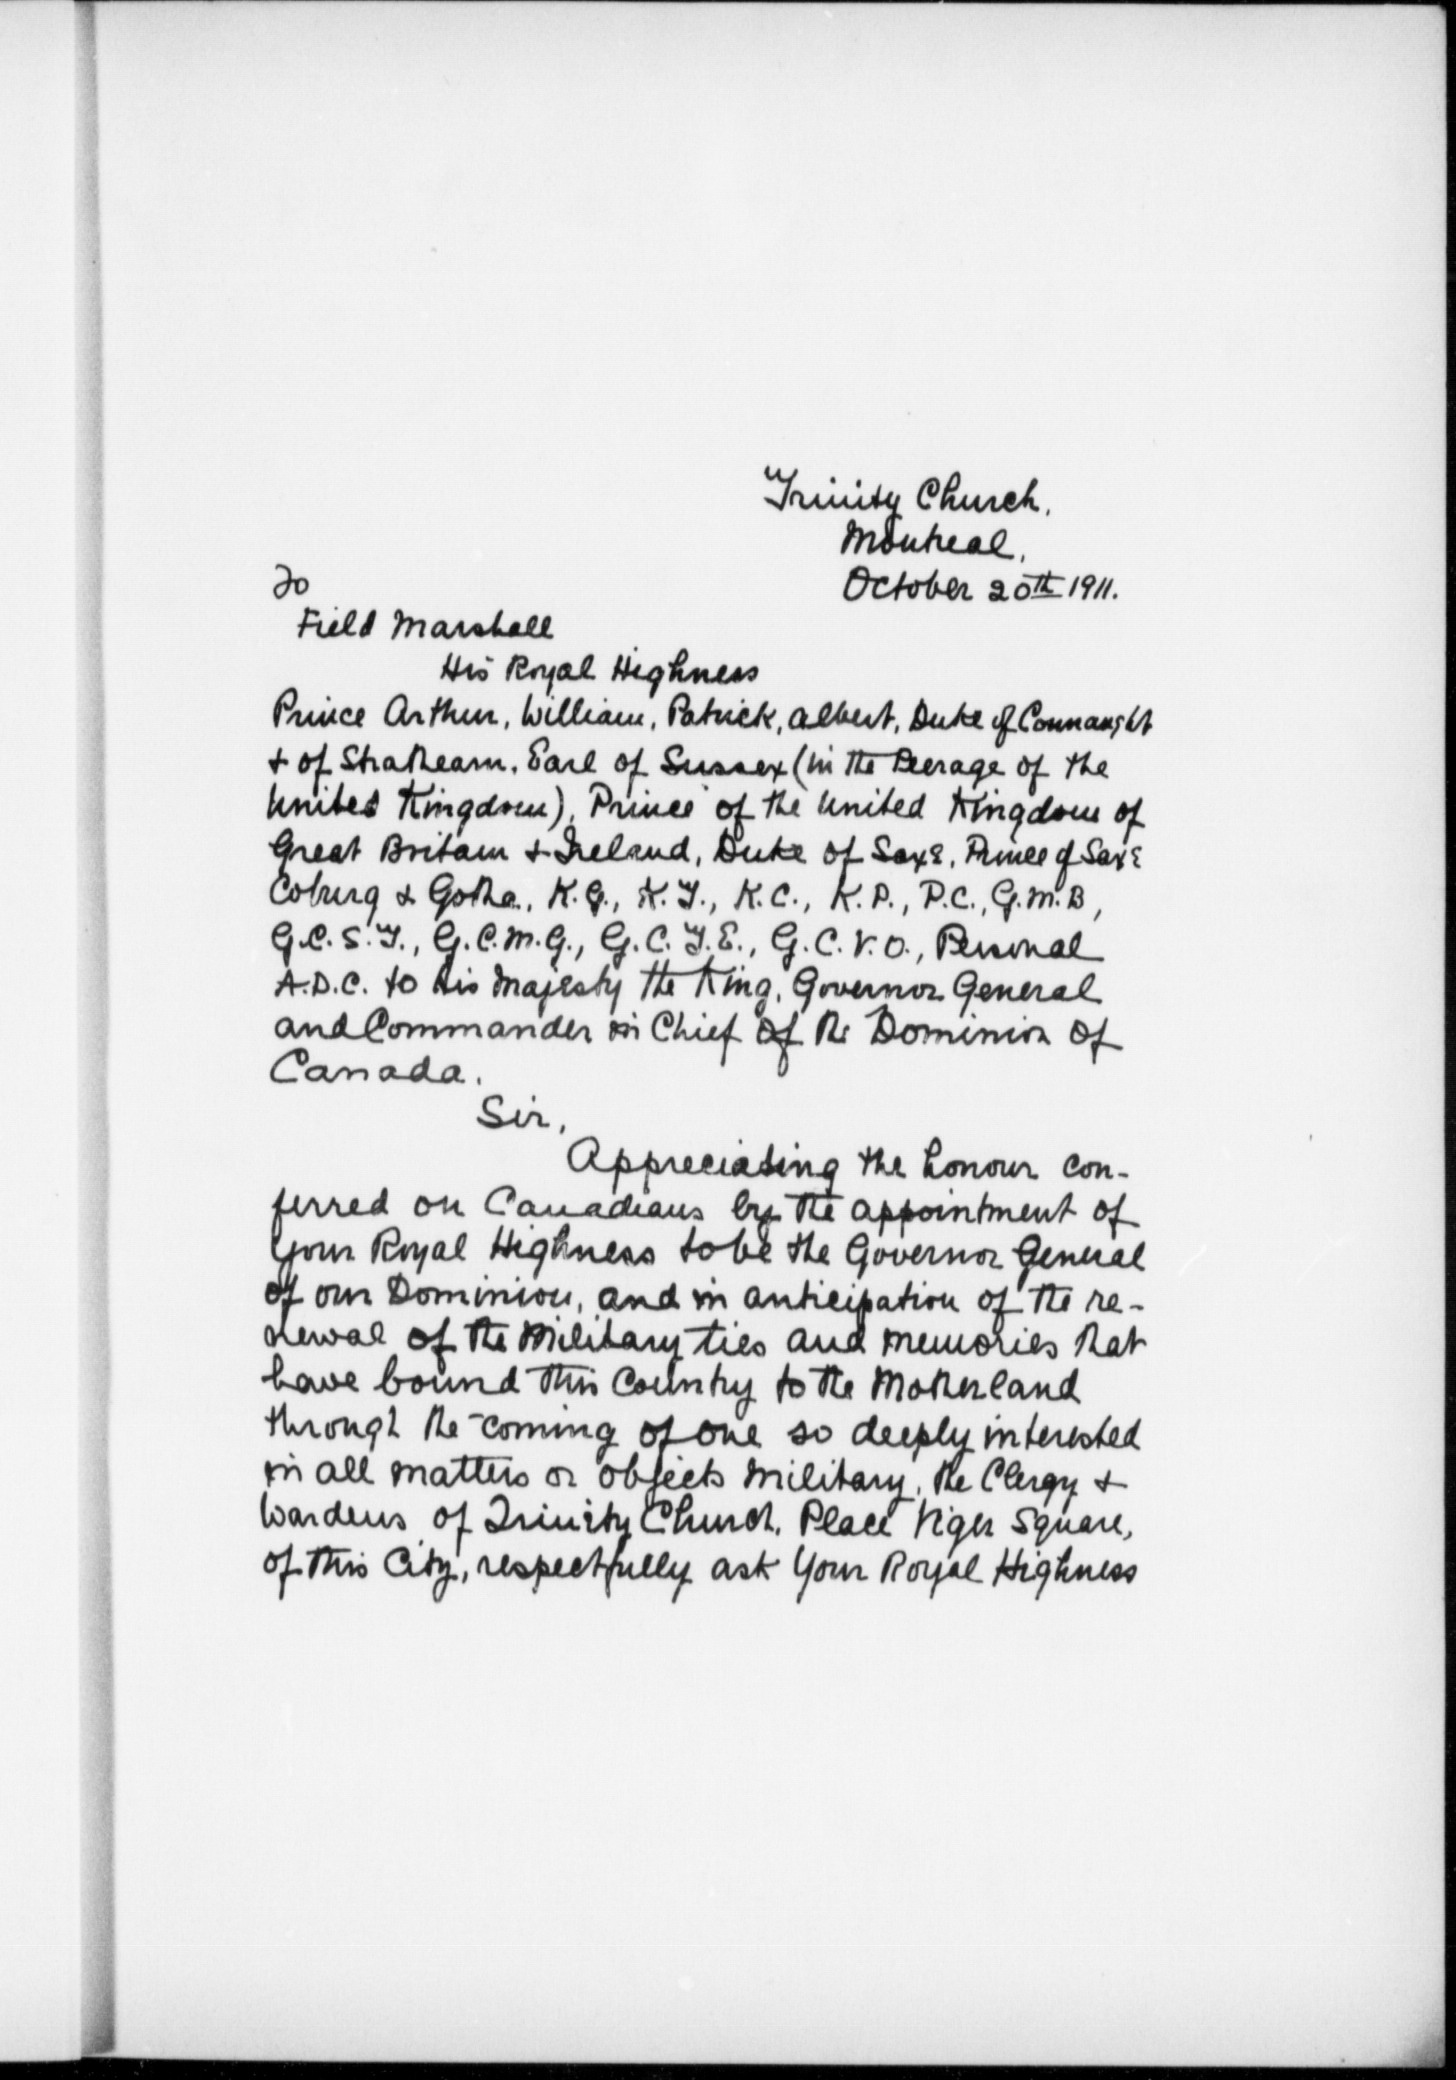 Trinity Church,
Montreal,
October 20th 1911.
To
Field Marshall
His Royal Highness
Prince Arthur, William, Patrick, Albert, Duke of Connaught
& of Strathearn, Earl of Sussex (in the Peerage of the
United Kingdom), Prince of the United Kingdom of
Great Britain & Ireland, Duke of Saxe, Prince of Saxe
Coburg & Gotha, K.G., K.T., K.C., K.P., P.C., G.M.B,
G.C.S.I., G.C.M.G., G.C.I.E., G.C.V.O., Personal
A.D.C. to His Majesty the King, Governor General
and Commander in Chief of the Dominion of
Canada.
Sir,
Appreciating the honour con-
ferred on Canadians by the appointment of
Your Royal Highness to be the Governor General
of our Dominion, and in anticipation of the re-
newal of the Military ties and memories that
have bound this Country to the Motherland
through the coming of one so deeply interested
in all matters or objects Military, the Clergy &
Wardens of Trinity Church, Place Viger Square,
of this City, respectfully ask Your Royal Highness